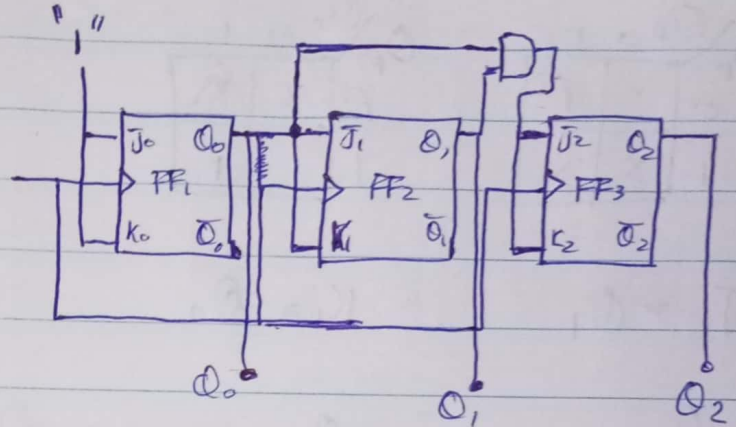 "1"
J₀ Q₀
FF₁
K₀ Q̅₀
J₁ Q₁
FF₂
K₁ Q̅₁
J₂ Q₂
FF₃
K₂ Q̅₂
Q₀
Q₁
Q₂